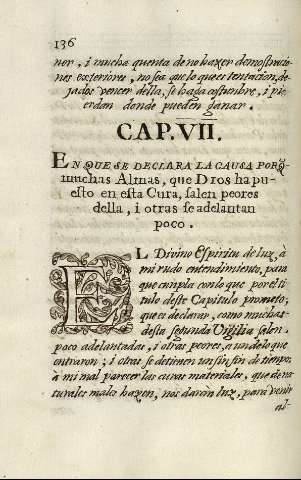 136
ner, i mucha quenta de no haxer demostracio
nes exteriores, no sea que lo que es tentacion, de
jados vencer della, se haga costumbre, i pi
erdan donde pueden ganar.
CAP. VII.
EN QUE SE DECLARA LA CAUSA PORQ̃
muchas Almas, que Dios ha pu-
esto en esta Cura, salen peores
della, i otras se adelantan
poco.
EL Divino Espiritu de luz, à
mi rudo entendimiento, para
que cumpla con lo que por el ti
tulo deste Capitulo prometo;
que es declarar, como muchas
desta segunda Vigilia salen
poco adelantadas, i otras peores, a un de lo que
entraron; i otras se detienen un sin fin de tiempo;
à mi mal parecer las curas materiales, que de na
turales males hazen, nos daràn luz, para venir
al-